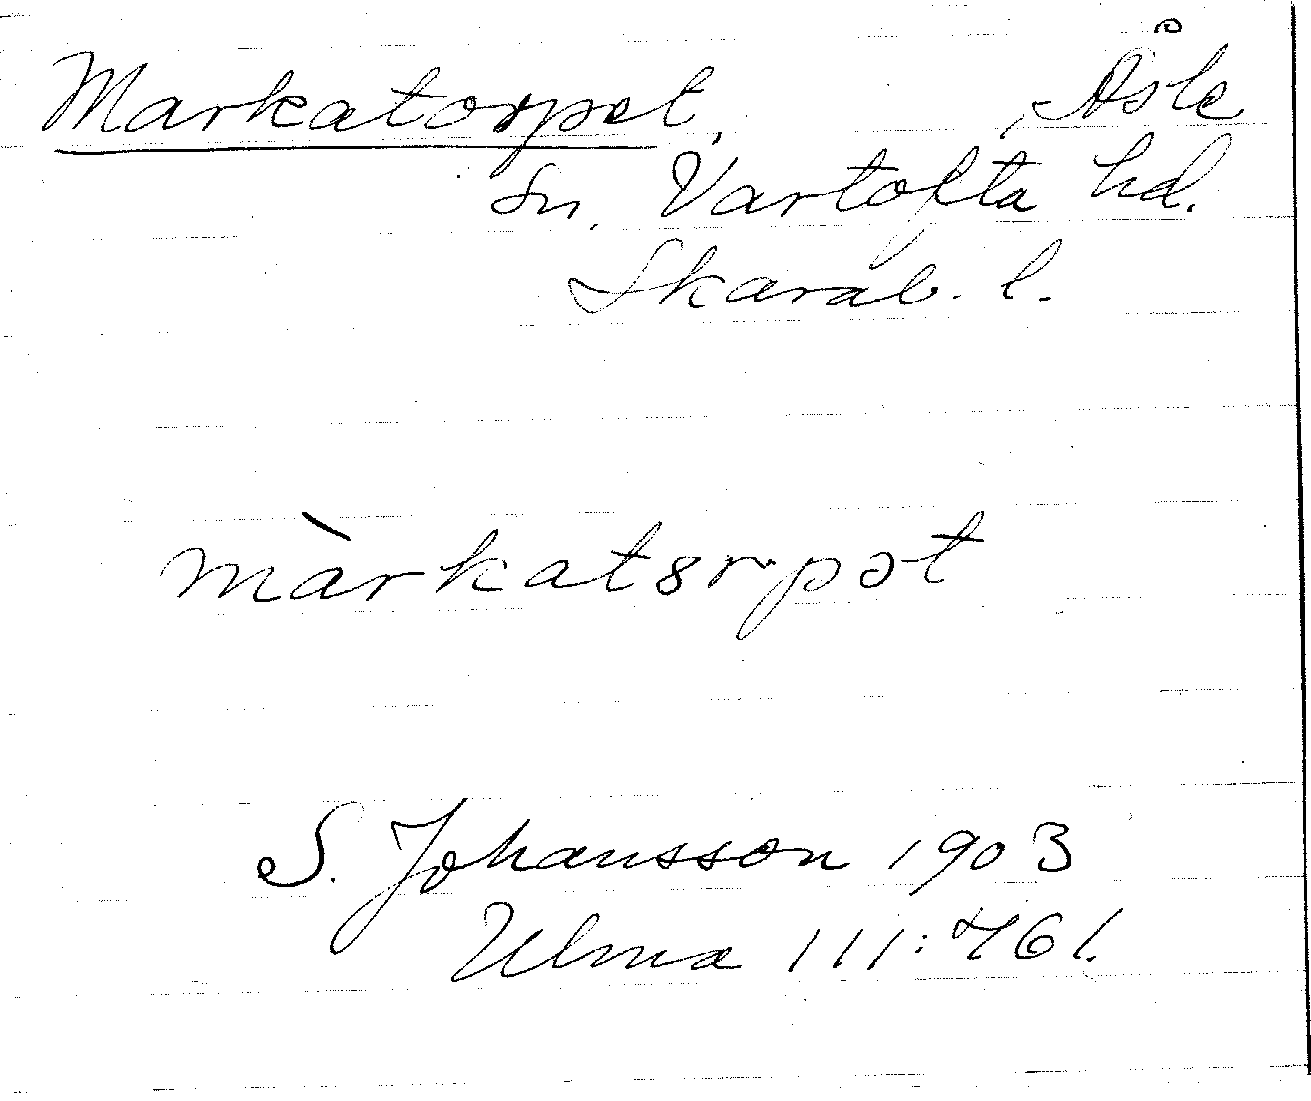 Markatorpet, Åsle
Sn. Vartofta hd.
Skarab. l.
màrkat8rpət
S. Johansson 1903
Ulma 111:761.